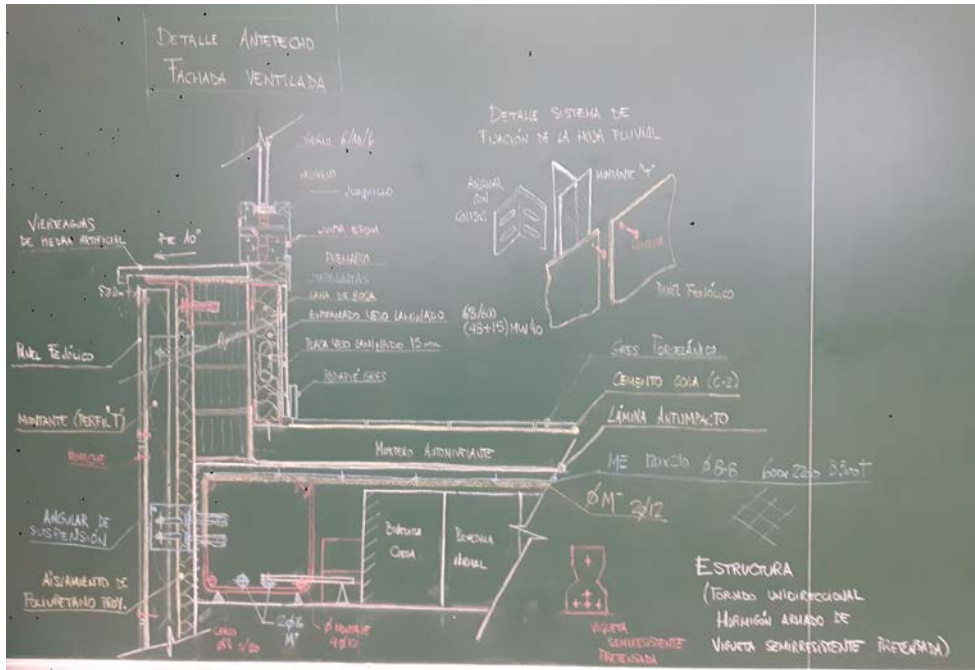 DETALLE ANTEPECHO
FACHADA VENTILADA
DETALLE SISTEMA DE
FIJACIÓN DE LA HOJA PLUVIAL
ANGULAR
CON
MONTANTE "T"
PANEL FENÓLICO
JUNQUILLO
JUNTA EPDM
PREMARCO
LANA DE ROCA
ENTRAMADO YESO LAMINADO
63/600
(48+15) MW 40
PLACA YESO LAMINADO 15 mm
RODAPIÉ GRES
VIERTEAGUAS
DE PIEDRA ARTIFICIAL
PTE 10°
PANEL FENÓLICO
MONTANTE (PERFIL "T")
REMACHE
ANGULAR DE
SUSPENSIÓN
AISLAMIENTO DE
POLIURETANO PROY.
GRES PORCELÁNICO
CEMENTO COLA (C-2)
LÁMINA ANTIIMPACTO
MORTERO AUTONIVELANTE
BOVEDILLA
CIEGA
BOVEDILLA
NORMAL
VIGUETA
SEMIRRESISTENTE
PRETENSADA
ESTRUCTURA
(FORJADO UNIDIRECCIONAL
HORMIGÓN ARMADO DE
VIGUETA SEMIRRESISTENTE PRETENSADA)